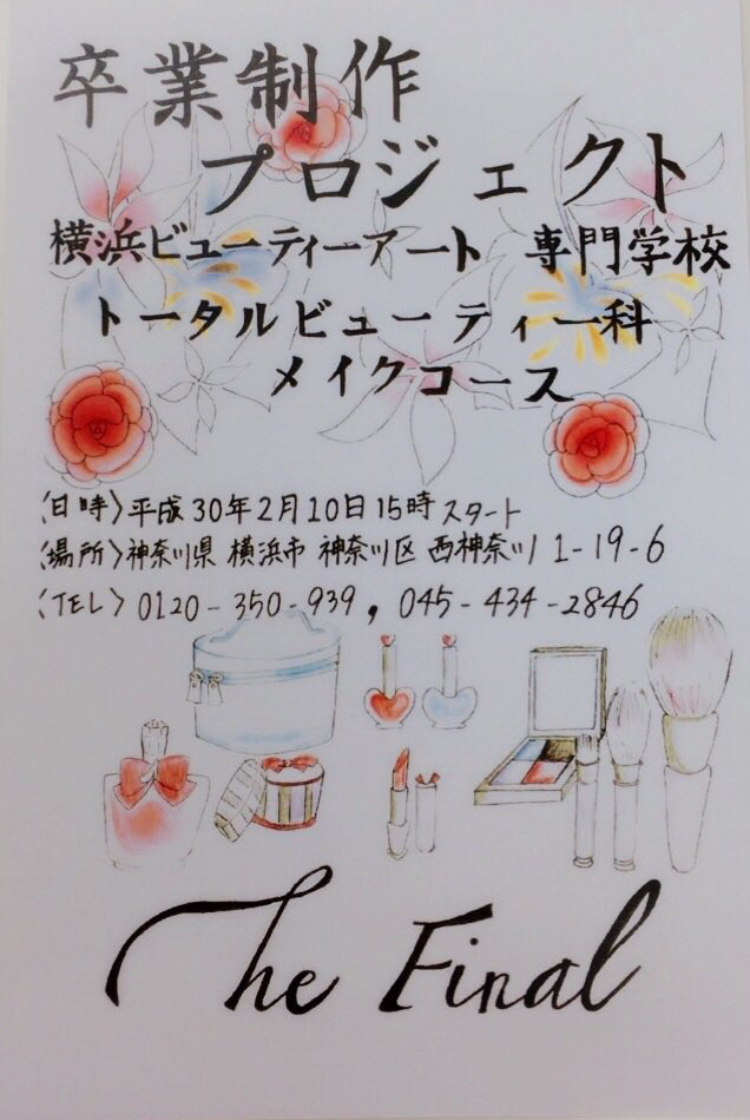 卒業制作
プロジェクト
横浜ビューティーアート 専門学校
トータルビューティー科
メイクコース
〈日時〉平成30年2月10日15時スタート
〈場所〉神奈川県 横浜市 神奈川区 西神奈川 1-19-6
〈TEL〉0120-350-939，045-434-2846
The Final